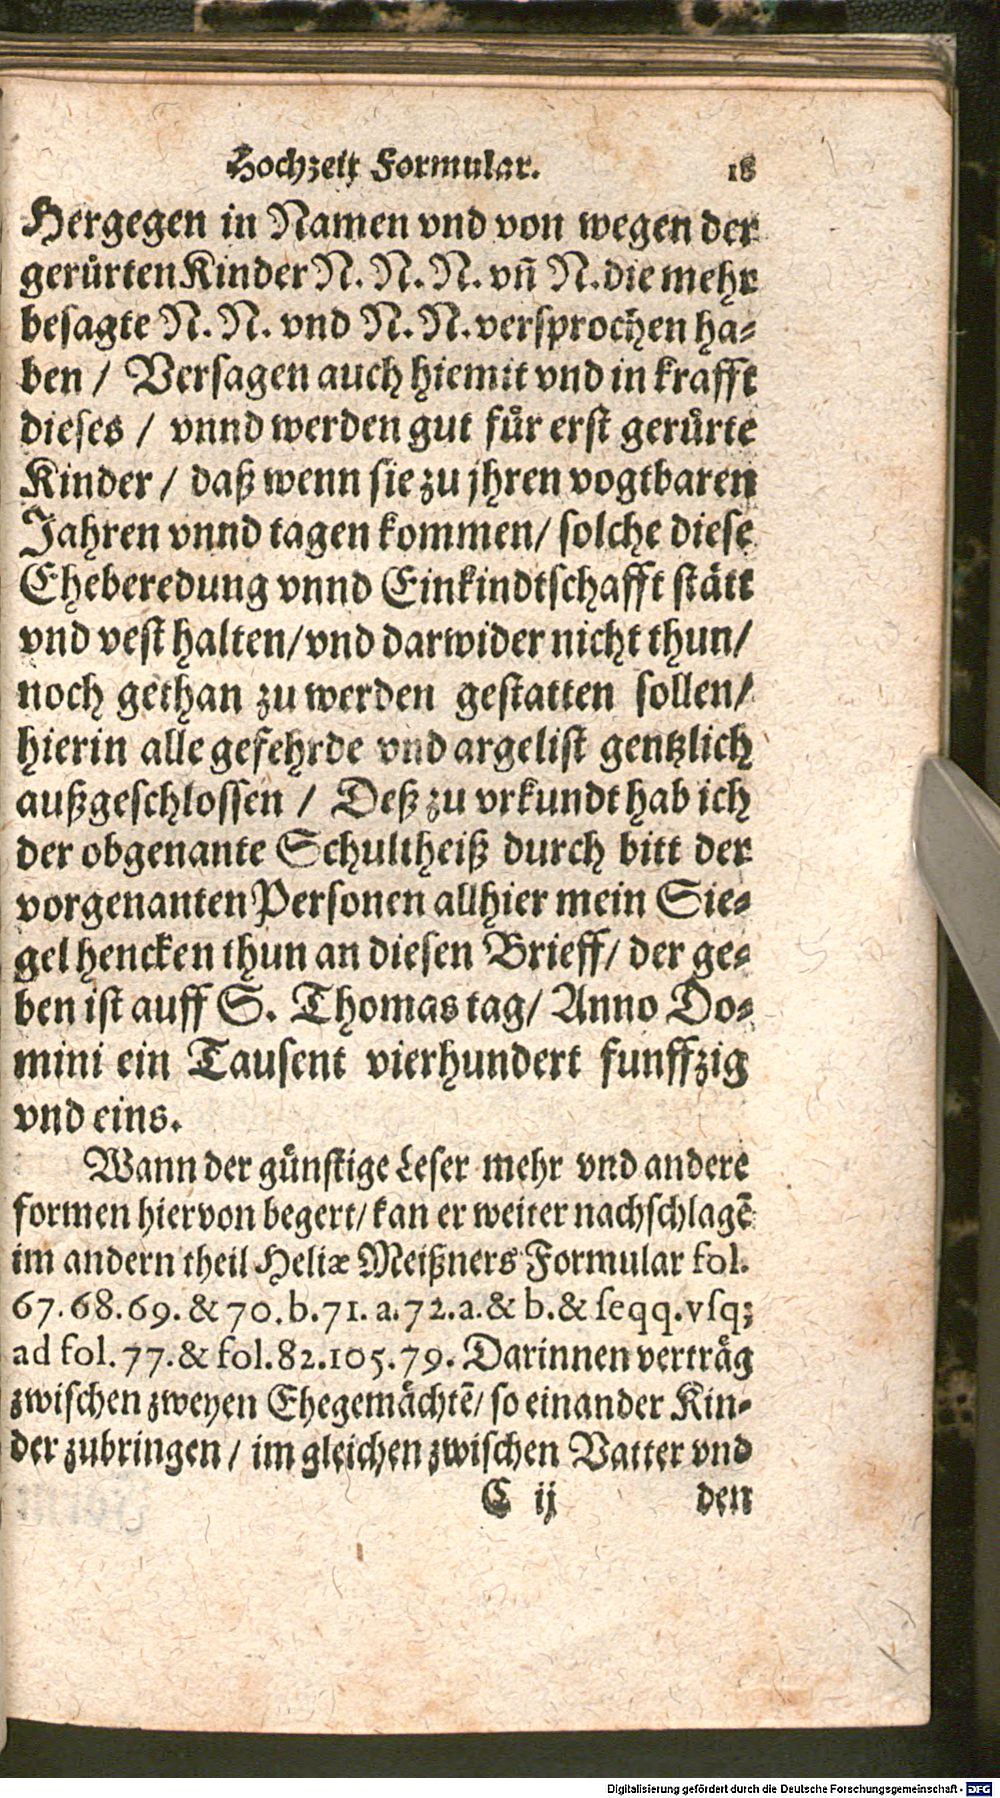 Hochzeit Formular. 18
Hergegen in Namen vnd von wegen der
gerůrten Kinder N. N. N. vn̄ N. die mehr
besagte N. N. vnd N. N. versprochen ha-
ben / Versagen auch hiemit vnd in krafft
dieses / vnnd werden gut fůr erst gerůrte
Kinder / daß wenn sie zu jhren vogtbaren
Jahren vnnd tagen kommen / solche diese
Eheberedung vnnd Einkindtschafft stått
vnd vest halten / vnd darwider nicht thun /
noch gethan zu werden gestatten sollen /
hierin alle gefehrde vnd argelist gentzlich
außgeschlossen / Deß zu vrkundt hab ich
der obgenante Schultheiß durch bitt der
vorgenanten Personen allhier mein Sie-
gel hencken thun an diesen Brieff / der ge-
ben ist auff S. Thomas tag / Anno Do-
mini ein Tausent vierhundert funffzig
vnd eins.
Wann der gůnstige Leser mehr vnd andere
formen hiervon begert / kan er weiter nachschlagē
im andern theil Heliæ Meißners Formular fol.
67. 68. 69. & 70. b. 71. a. 72. a. & b. & seqq. vsq;
ad fol. 77. & fol. 82. 105. 79. Darinnen verträg
zwischen zweyen Ehegemåchtē / so einander Kin-
der zubringen / im gleichen zwischen Vatter vnd
C ij den
Digitalisierung gefördert durch die Deutsche Forschungsgemeinschaft - DFG